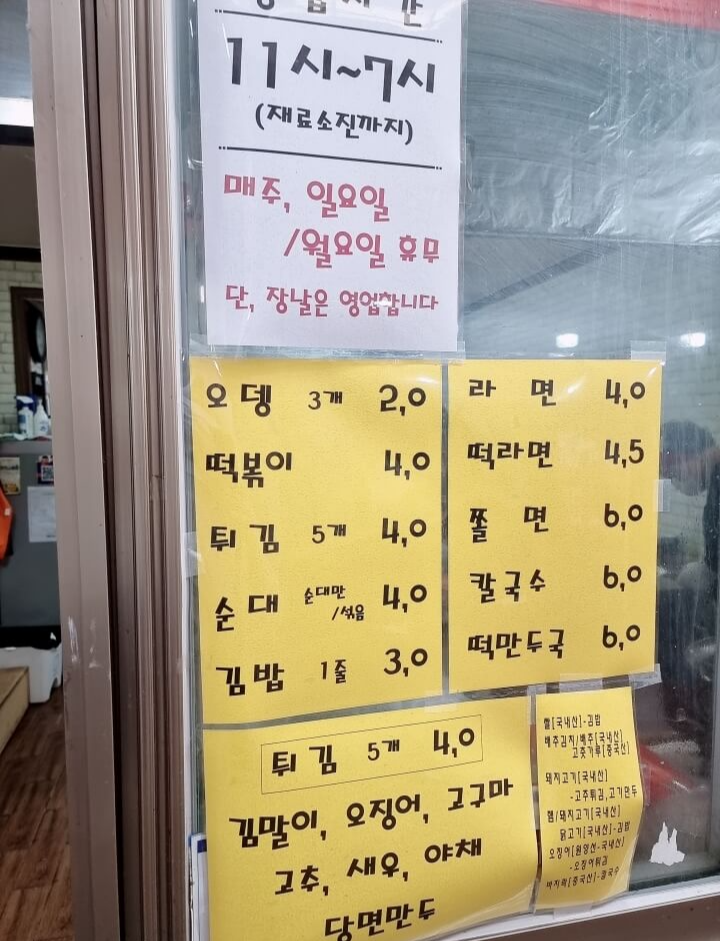 영업시간
11시~7시
(재료소진까지)
매주, 일요일
/월요일 휴무
단, 장날은 영업합니다
오뎅 3개 2,0
떡볶이 4,0
튀김 5개 4,0
순대 순대만
/섞음 4,0
김밥 1줄 3,0
라면 4,0
떡라면 4,5
쫄면 6,0
칼국수 6,0
떡만두국 6,0
튀김 5개 4,0
김말이, 오징어, 고구마
고추, 새우, 야채
당면만두
쌀[국내산]-김밥
배추김치/배추[국내산]
고춧가루[중국산]
돼지고기[국내산]
-고추튀김,고기만두
햄/돼지고기[국내산]
닭고기[국내산]-김밥
오징어[원양산-국내산]
-오징어튀김
바지락[중국산]-칼국수